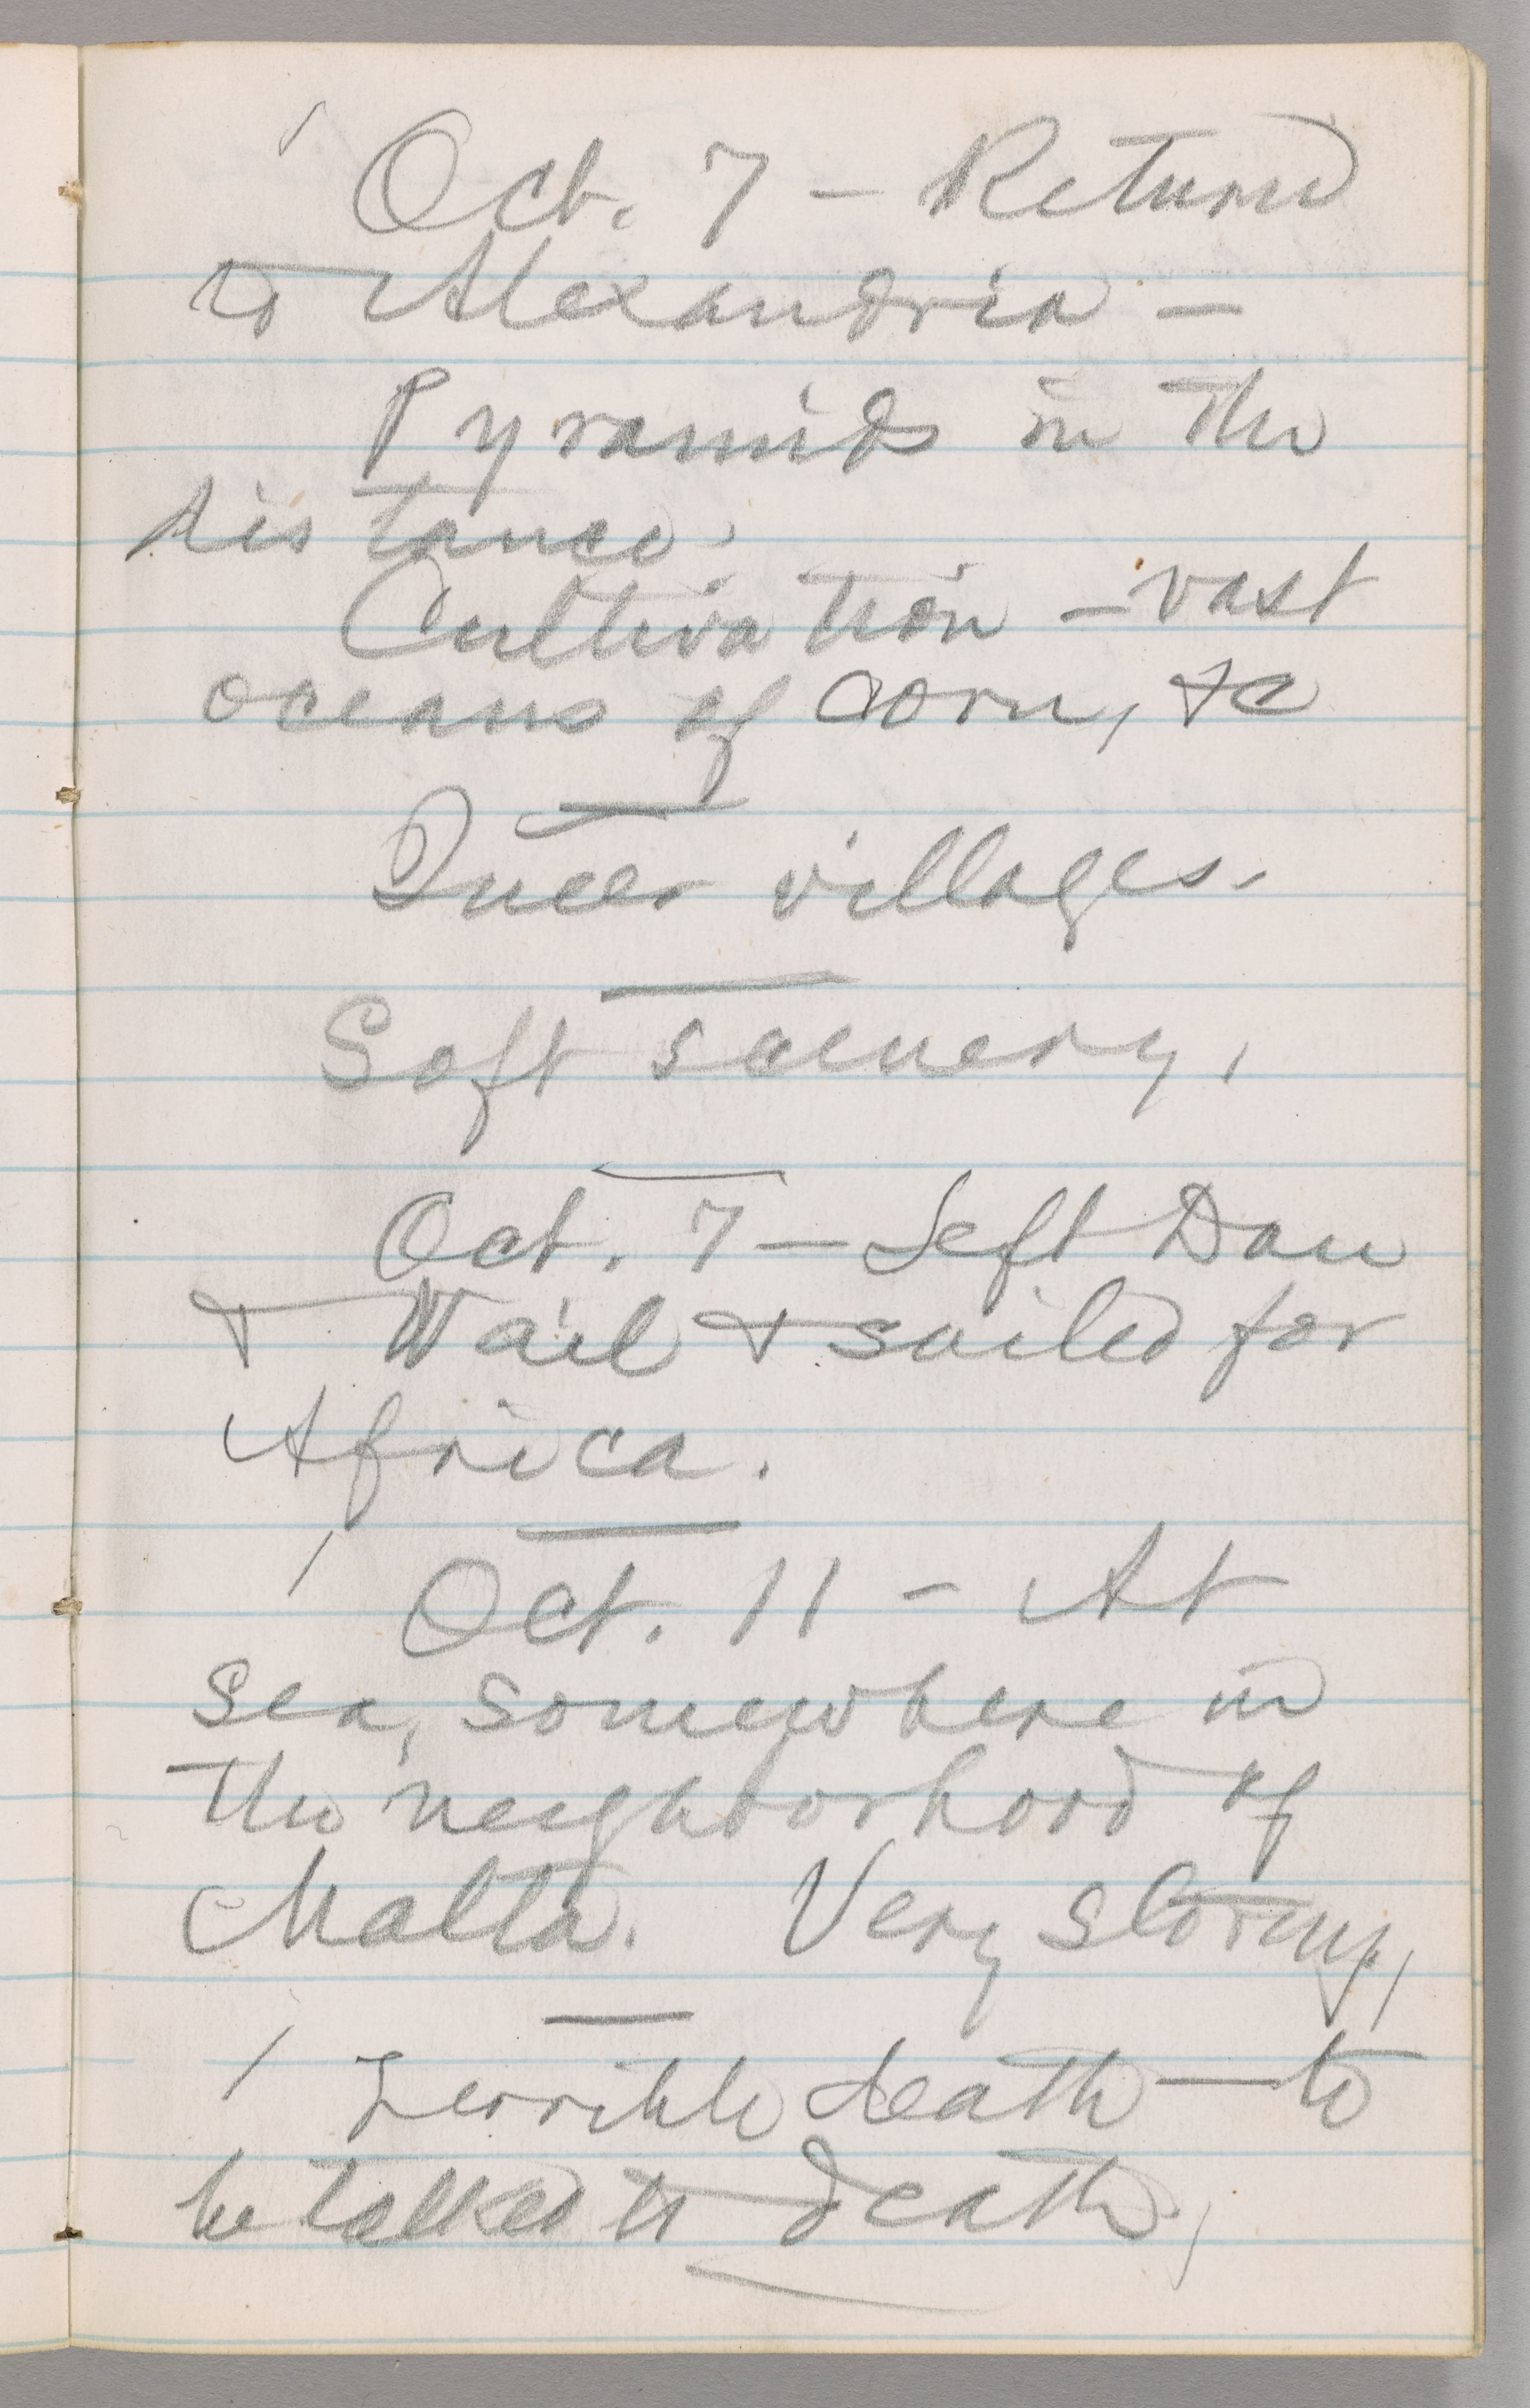 Oct. 7 – Returnd
to Alexandria –
Pyramids in the
distance.
Cultivation – vast
oceans of corn, &c
Queer villages.
Soft scenery.
Oct. 7 – Left Dan
& & sailed for
Africa.
Oct. 11 – At
sea, somewhere in
the neighborhood of
Malta. Very stormy.
Terrible death – to
be talked to death.